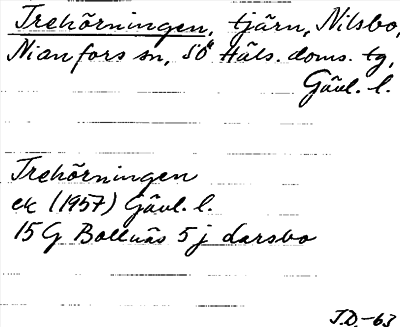 Trehörningen, tjärn, Nilsbo,
Nianfors sn, SÖ Häls. doms. tg,
Gävl. l.
Trehörningen
ek (1957) Gävl. l.
15 G Bollnäs 5 j darsbo
J.D.-63